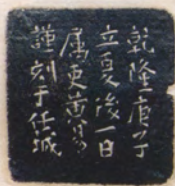 乾隆庚
立夏後一日
属吏黄易
謹刻于任城